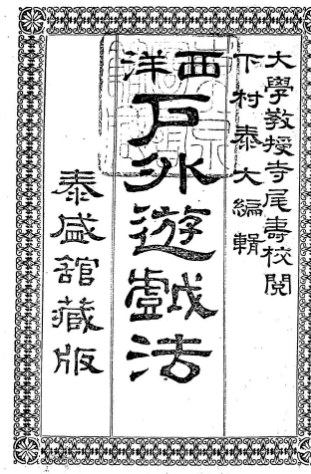 大學教授寺尾壽校閲
下村泰大編輯
西洋
戶外遊戯法
泰盛館藏版